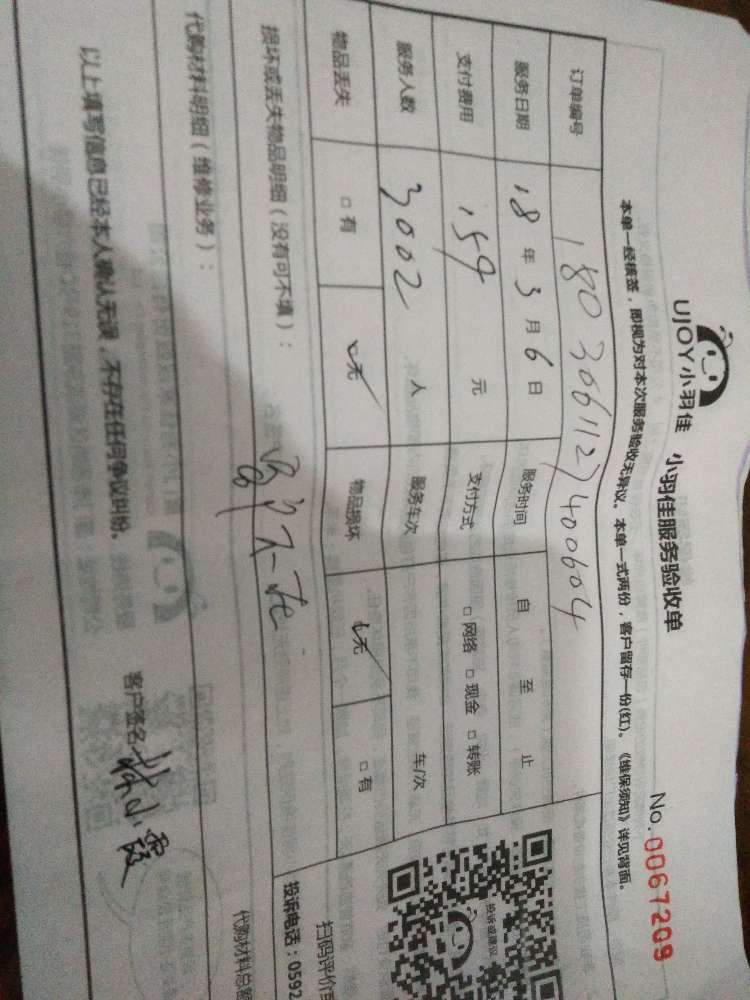 UJOY小羽佳 小羽佳服务验收单 No.0067209
本单一经核签，即视为对本次服务验收无异议。本单一式两份，客户留存一份(红)。《维保须知》详见背面。
订单编号 1803061127400604
服务日期 18年3月6日 服务时间 自 至 止
支付费用 159 元 支付方式 □网络 □现金 □转账
服务人数 3002 人 服务车次 车/次
物品丢失 □有 □无 物品损坏 □无 □有
损坏或丢失物品明细（没有可不填）：
代购材料明细（维修业务）：
以上填写信息已经本人确认无误，不存在任何争议纠纷。
客户签名
投诉或建议
扫码评价
投诉电话：0592
代购材料总